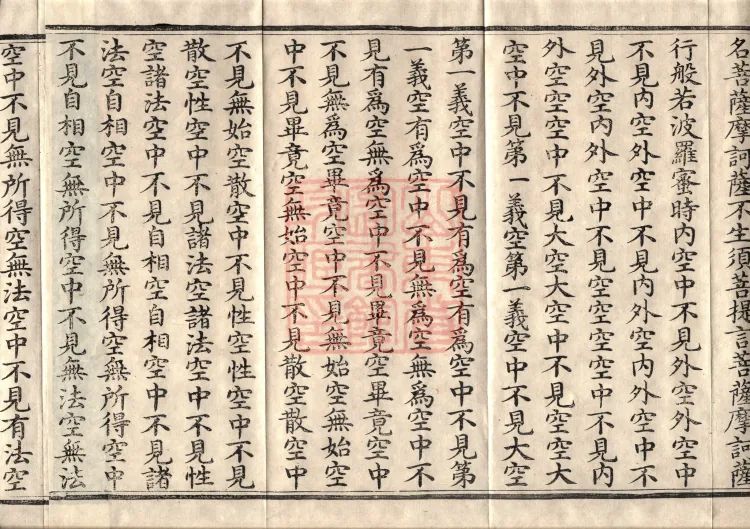 名菩薩摩訶薩不生須菩提言菩薩摩訶薩
行般若波羅蜜時内空中不見外空外空中
不見内空外空中不見内外空内外空中不
見外空内外空中不見空空空空中不見内
外空空空中不見大空大空中不見空空大
空中不見第一義空第一義空中不見大空
第一義空中不見有爲空有爲空中不見第
一義空有爲空中不見無爲空無爲空中不
見有爲空無爲空中不見畢竟空畢竟空中
不見無爲空畢竟空中不見無始空無始空
中不見畢竟空無始空中不見散空散空中
不見無始空散空中不見性空性空中不見
散空性空中不見諸法空諸法空中不見性
空諸法空中不見自相空自相空中不見諸
法空自相空中不見無所得空無所得空中
不見自相空無所得空中不見無法空無法
空中不見無所得空無法空中不見有法空